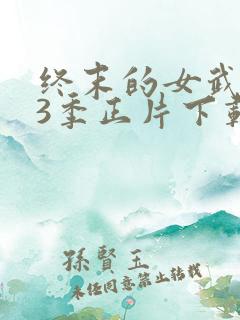 终末的女武
3季正片下载
孫賢玉
未经同意禁止转载